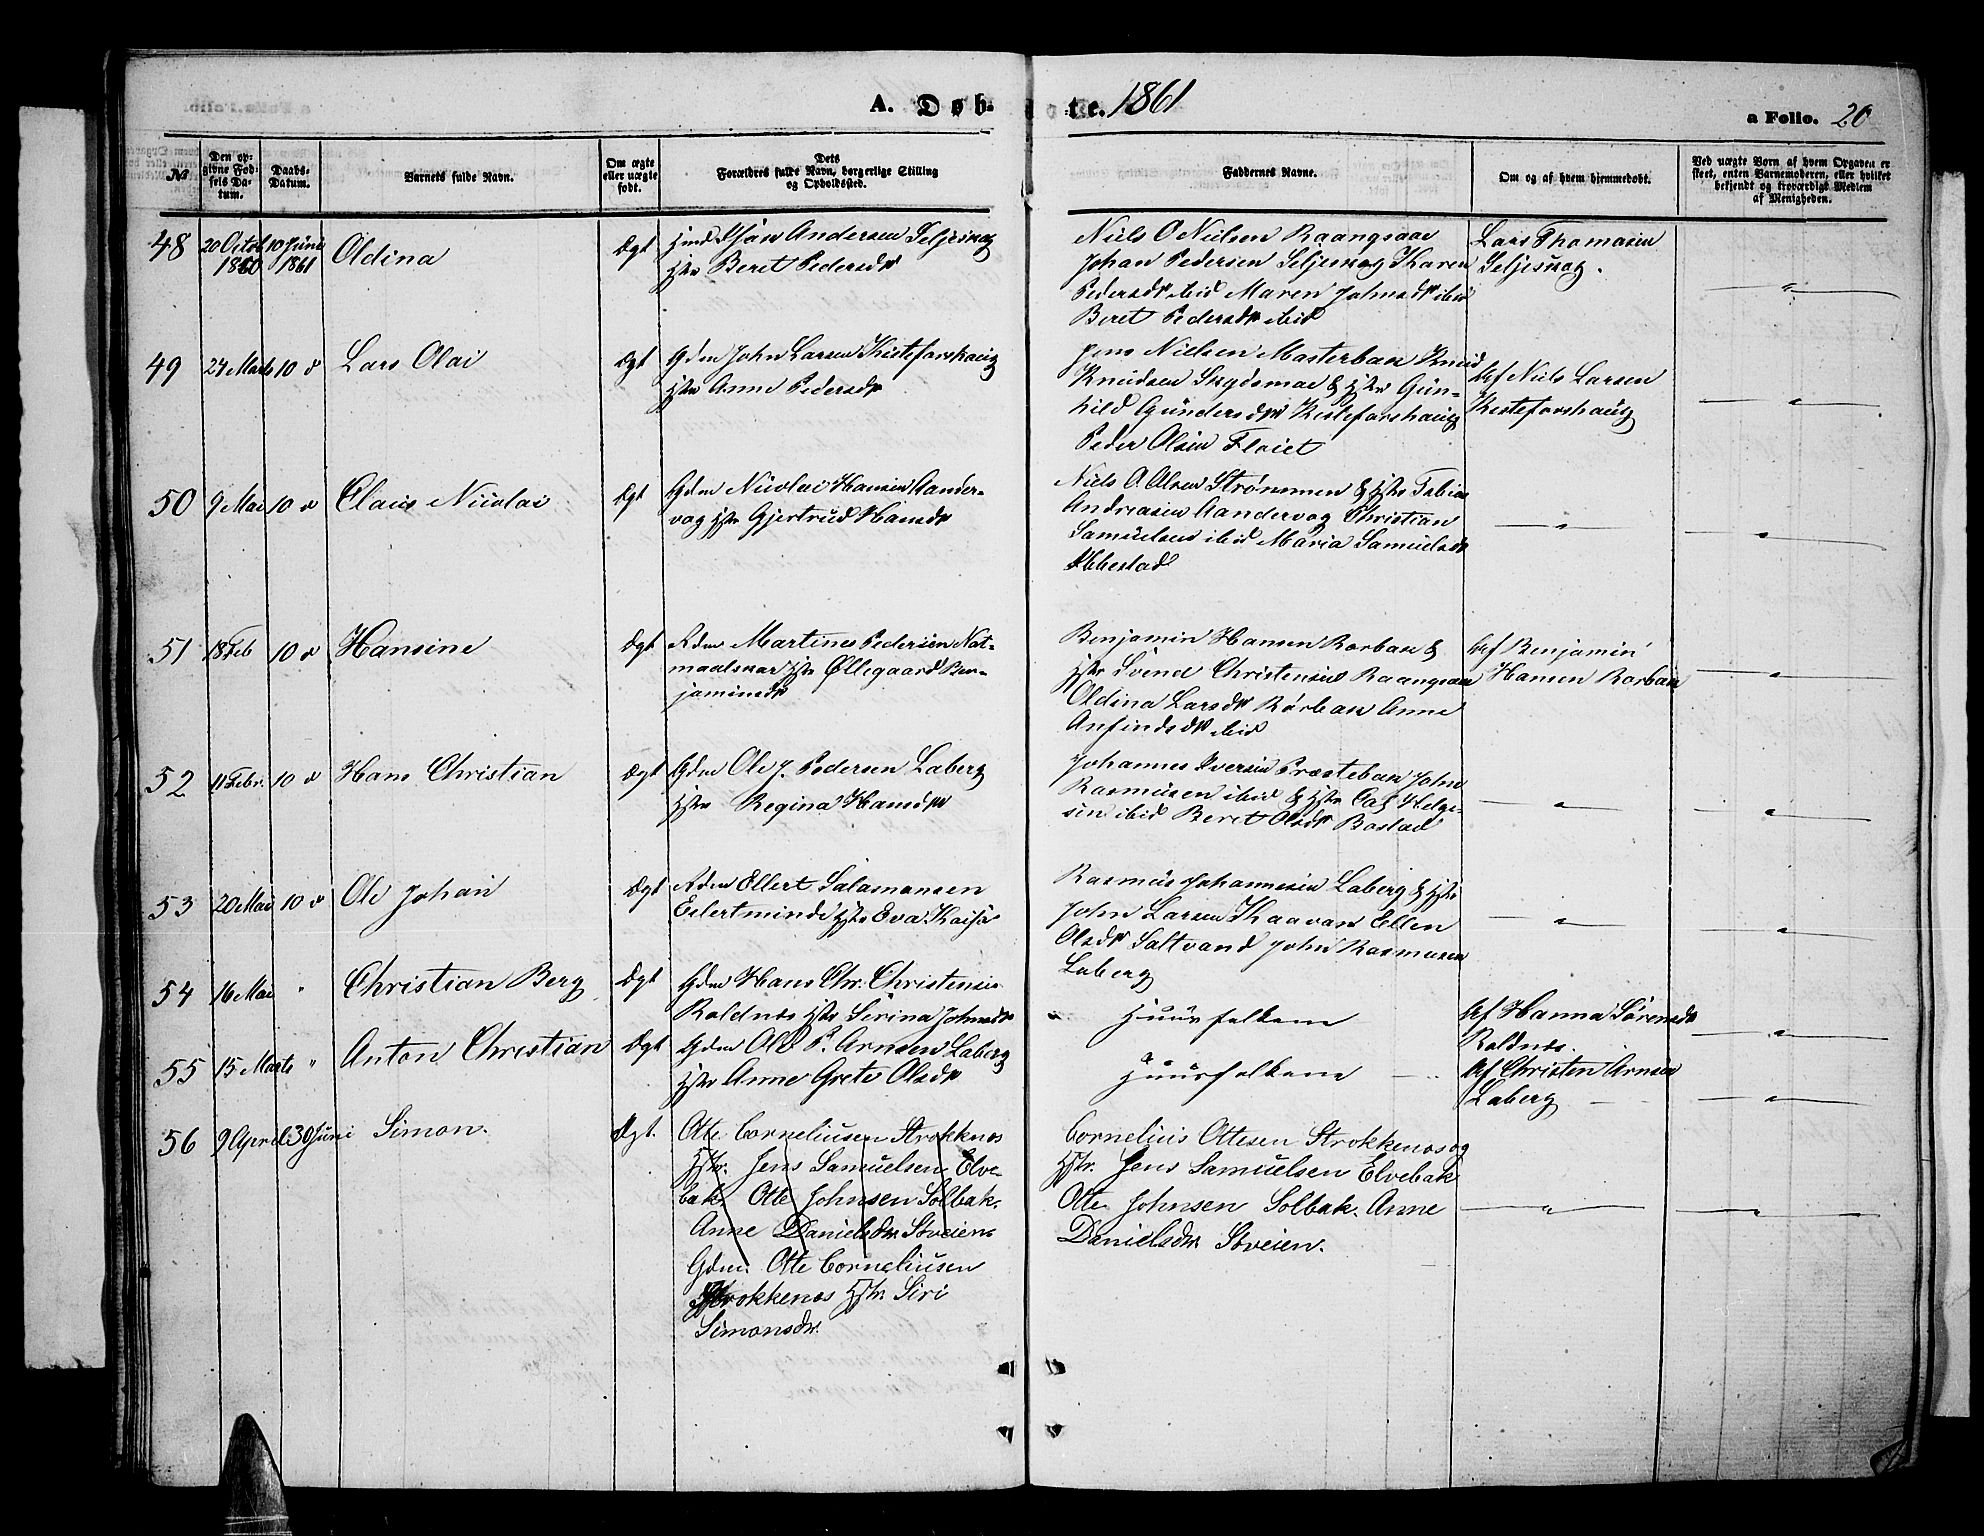 A. Døb- te. 1861
a Folio. 20
№
Den op-
givne Fød-
sels Da-
tum.
Daabs-
Datum.
Barnets fulde Navn.
Om ægte
eller uægte
født.
Dets
Forældres fulde Navn, borgerlige Stilling
og Opholdssted.
Faddernes Navne.
Om og af hvem hjemmedøbt.
Ved uægte Børn af hvem Opgaven er
skeet, enten Barnemoderen, eller hvilket
bekjendt og troværdigt Medlem
af Menigheden.
48
20 Octob
1860
10 Juni
1861
Oldina
Ægt
Andersen Seljeskog
Hstr Beret Pedersdr
Niels O Nielsen Raangsaae
Johan Pedersen Seljeskog Karen
Pedersdr ibid Maren Johnsdr ibid
Beret Pedersdr ibid
Lars Thomasen
Seljeskog.
49
24 Marts
10 d
Lars Olai
Ægt
Gdm John Larsen Kisteforshaug
Hstr Anne Pedersdr
Jens Nielsen Masterbak Knud
Knudsen & Hstr Gun-
hild Gundersdr Kisteforshaug
Peder Olsen Floiet
Af Niels Larsen
Kisteforshaug
50
9 Mai
10 d
Claus Nicolai
Ægt
Gdm Nicolai Hansen Aander-
vag Hstr Gjertrud Hansdr
Niels O. Olsen Strømmen & Hstr Tobias
Andreasen Aandervag Christian
Samuelsen ibid Maria Samuelsdr
Ibbestad
51
18 Feb
10 d
Hansine
Ægt
Martines Pedersen Not-
maalsvar Hstr Øllegaard Ben-
jaminsdr
Benjamin Hansen Rorbak &
Hstr Svend Christensen Raangsaae
Oldina Larsdr Rørbak Anne
Anfindsdr ibid
Af Benjamin
Hansen Rorbak
52
11 Febr.
10 d
Hans Christian
Ægt
Gdm Ole J. Pedersen Laberg
Hstr Regina Hansdr
Johannes Iversen Præstebak John
Rasmusen ibid & Hstr Helge-
sen ibid Beret Olsdr Bostad
53
20 Mai
10 d
Ole Johan
Ægt
Ellert Salamonsen
Eilertminde Hstr Eva Kaisa
Rasmus Johannesen Laberg & Hstr
John Larsen Kaavan Ellen
Olsdr Saltvand John Rasmusen
Laberg
54
16 Mai
"
Christian Berg
Ægt
Gdm Hans Chr. Christensen
Roldnæs Hstr Serina Johnsdr
Huusfolkene
Af Hanna Sørensdr
Roldnæs.
55
15 Marts
"
Anton Christian
Ægt
Gdm Ole P. Arnsen Laberg
Hstr Anne Grete Olsdr
Huusfolkene
Af Christen Arnsen
Laberg
56
9 April
30 Juni
Simon.
Ægt.
Otte Corneliusen Strokkenæs
Hstr. Jens Samuelsen Elve-
bak. Otte Johnsen Solbak.
Anne Danielsdr. Stveien.
Gdm. Otte Corneliusen
Strokkenæs Hstr. Siri
Simonsdr.
Cornelius Ottesen Strokkenæs og
Hstr. Jens Samuelsen Elvebak
Otte Johnsen Solbak. Anne
Danielsdr. Stveien.